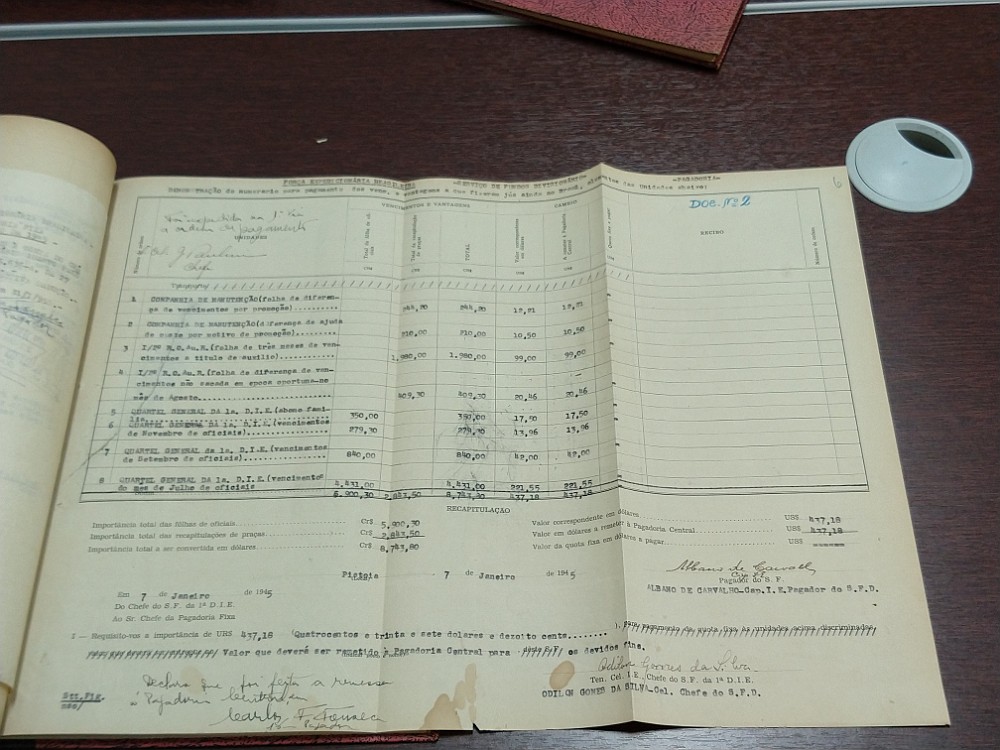 FORÇA EXPEDICIONÁRIA BRASILEIRA -SERVIÇO DE FUNDOS DIVISIONÁRIO- -PAGADORIA-
DEMONSTRAÇÃO do Numerario para pagamento dos vens. e vantagens a que fizeram jús ainda no Brasil, elementos das Unidades abaixo:
DOC. Nº 2
6
VENCIMENTOS E VANTAGENS CAMBIO
Número de ordem
UNIDADES
TOTAL
Valor correspondente em dólares
A remeter à Pagadoria Central
Quota fixa a pagar
RECIBO
Número de ordem
1 COMPANHIA DE MANUTENÇÃO(folha de diferen-
ça de vencimentos por promoção).......... 244,20 244,20 12,21 12,21
2 COMPANHIA DE MANUTENÇÃO(diferença de ajuda
de custo por motivo de promoção).......... 210,00 210,00 10,50 10,50
3 I/2º R.O.Au.R.(folha de três meses de ven-
cimentos a titulo de auxilio)............ 1.980,00 1.980,00 99,00 99,00
4 I/2º R.O.Au.R.(folha de diferença de ven-
cimentos não sacada em epoca oportuna-no
mês de Agosto............ 409,30 409,30 20,46 20,46
5 QUARTEL GENERAL DA 1a. D.I.E.(abono fami-
lia............ 350,00 350,00 17,50 17,50
6 QUARTEL GENERAL DA 1a. D.I.E.(vencimentos
de Novembro de oficiais)............ 279,30 279,30 13,96 13,96
7 QUARTEL GENERAL da 1a. D.I.E.(vencimentos
de Setembro de oficiais)............ 840,00 840,00 42,00 42,00
8 QUARTEL GENERAL DA 1a. D.I.E.(vencimentos
do mes de Julho de oficiais 4.431,00 4.431,00 221,55 221,55
5.900,30 2.843,50 8.743,80 437,18 437,18
RECAPITULAÇÃO
Importância total das fôlhas de oficiais. Cr$ 5.900,30 Valor correspondente em dólares US$ 437,18
Importância total das recapitulações de praças Cr$ 2.843,50 Valor em dólares a remeter à Pagadoria Central US$ 437,18
Importância total a ser convertida em dólares Cr$ 8.743,80 Valor da quota fixa em dólares a pagar US$
Pistoia - 7 de Janeiro de 1945
Albano de Carvalho
Cap. I.E.
Pagador do S. F.
ALBANO DE CARVALHO-Cap.I.E.Pagador do S.F.D.
Em 7 de Janeiro de 1945
Do Chefe do S.F. da 1ª D.I.E.
Ao Sr. Chefe da Pagadoria Fixa
I — Requisito-vos a importância de US$ 437,18 (Quatrocentos e trinta e sete dolares e dezoito cents....... ), para pagamento da quota fixa às unidades acima discriminadas
Valor que deverá ser remetido à Pagadoria Central para os devidos fins.
Odilon Gomes da Silva
Ten. Cel. I.E., Chefe do S.F. da 1ª D.I.E.
ODILON GOMES DA SILVA-Cel. Chefe do S.F.D.
Declaro que foi feita a remessa
à Pagadoria Central, em
Carlos F. Fonseca
Pagador